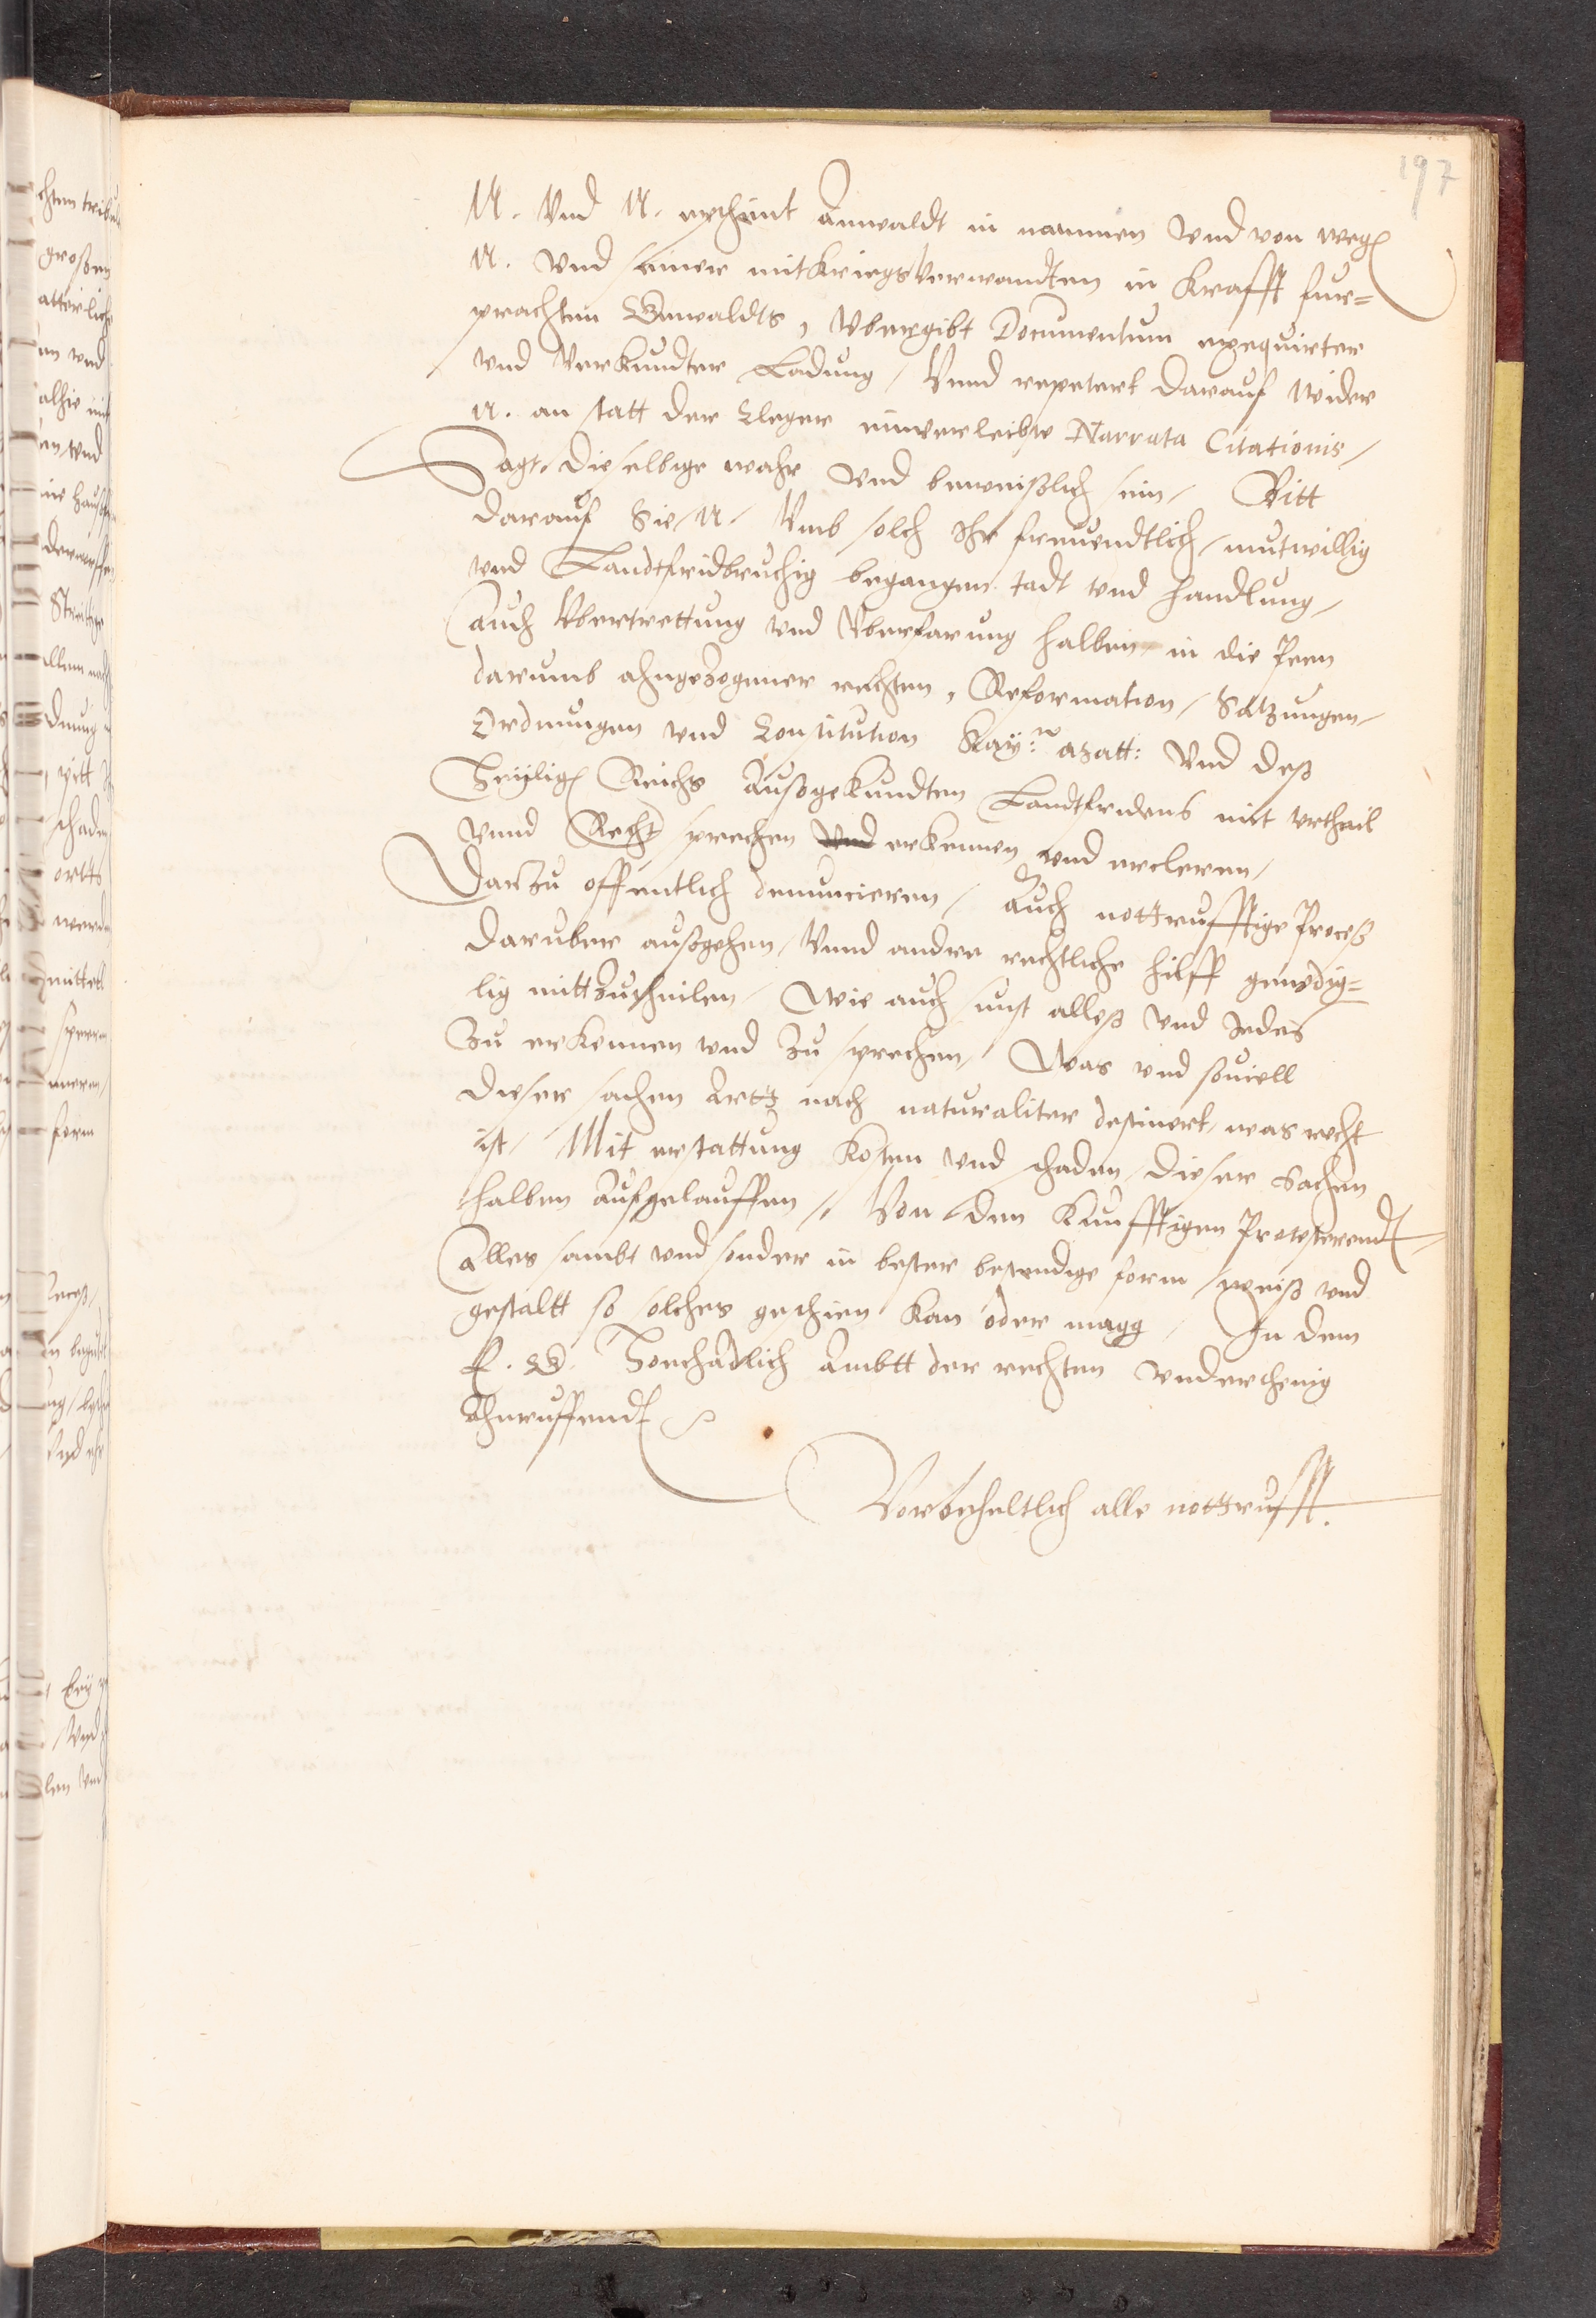 197
N. Vnd N. erscheint Anwaldt in nammen vnd von weg(en)
N. vnd seiner mitkriegsverwandten in Krafft fur=
prachten Gewaldts, Vbergibt Documentum exequirter
vnd Verkundter Ladung / Vnnd repetert darauf wider
N. an statt der Cleger einverleibte Narrata Citationis /
Sagt, dieselbige wahr vnd beweißlich sein / Bitt
darauf Sie / N / Vmb solch Ihr freuendtlich / mutwillig
vnd Landtfridbruchig begangen tadt vnd handlung /
auch Vbertrettung vnd Vberfarung halben in die Peen
darumb ahngezogener rechten, Reformation / Satzungen /
Ordnungen vnd Constitution Kay: Matt: Vnd deß
Heÿlig(en) Reichs Außgekundten Landtfridens mit vrtheil
vnnd Recht sprechen vnd erkennen vnd ercleren /
Darzu offentlich denuncieren / Auch notturfftige Proceß
daruber außgehen / Vnnd andre rechtliche hilff genedig=
lig mittzutheilen / Wie auch sunst alleß vnd Jedes
Zu erkennen vnd Zu sprechen / Was vnd souiell
dieser sachen Artt nach naturaliter desinert, was recht
ist / Mit erstattung Kosten vnd schaden / dieser Sachen
halben Aufgelauffen /, Von den Kunfftigen Protesterendt
Alles sambt vnd sonder in bester bestendige form / weiß vnd
gestaltt so solches geschien kan oder magg / In dem
E. G. Hochadlich Ambtt der rechten vnderthenig
Ahnruffendt
Vorbeheltlich alle notturfft.